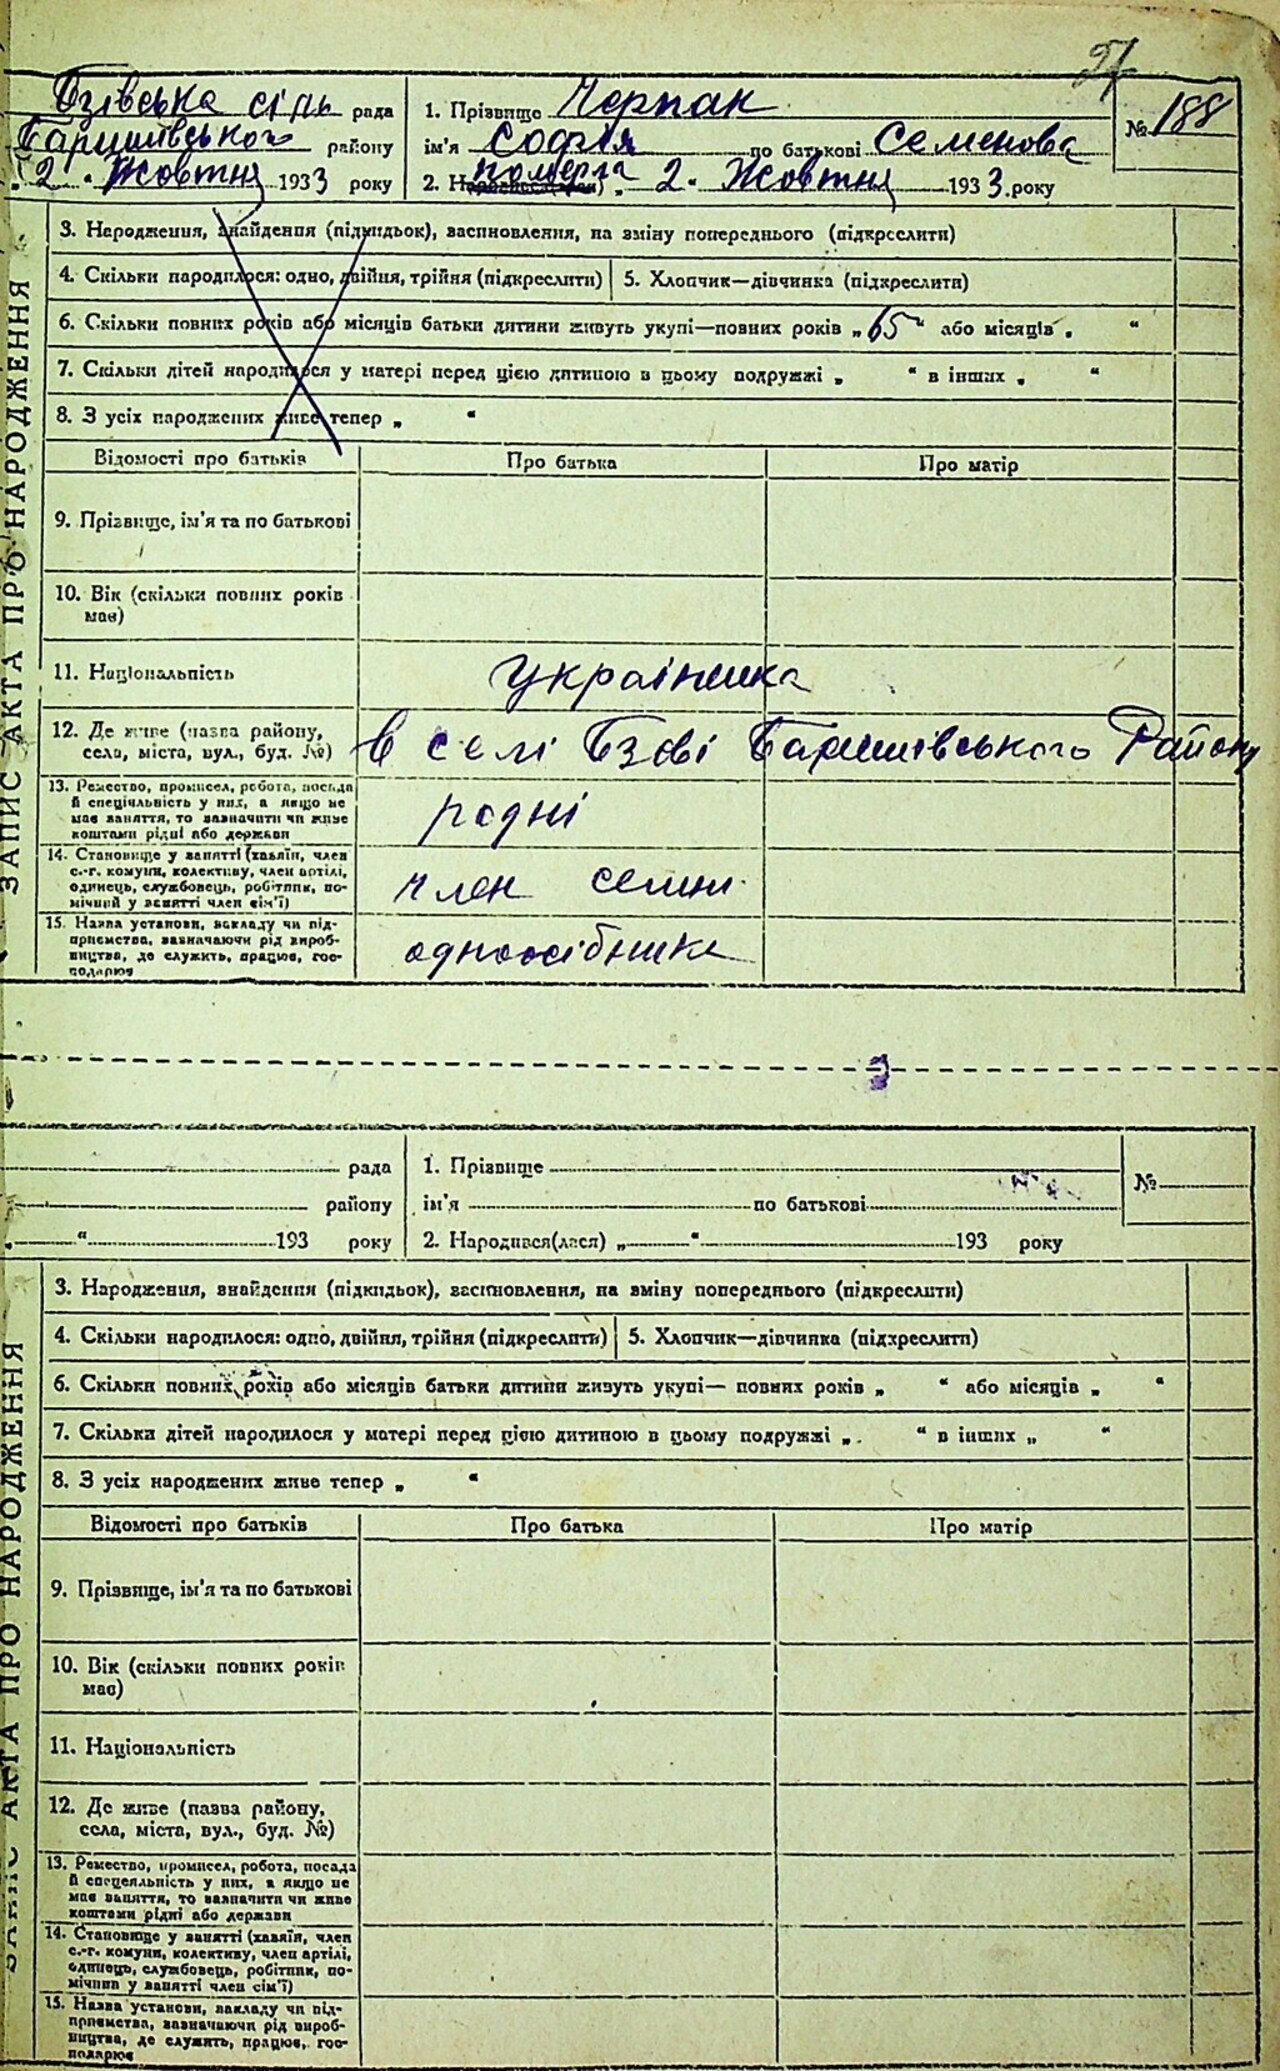 27
Бзівська сіль рада
Баришівського району
„2.“ Жовтня 1933 року
1. Прізвище Черпак
ім'я Софія по батькові Семенова
померла
2. Народився(лася) „2.“ Жовтня 1933. року
№ 188
ЗАПИС АКТА ПРО НАРОДЖЕННЯ
3. Народження, знайдення (підкидьок), засиновлення, на зміну попереднього (підкреслити)
4. Скільки народилося: одно, двійня, трійня (підкреслити) 5. Хлопчик—дівчинка (підкреслити)
6. Скільки повних років або місяців батьки дитини живуть укупі—повних років „65“ або місяців „ “
7. Скільки дітей народилося у матері перед цією дитиною в цьому подружжі „ “ в інших „ “
8. З усіх народжених живе тепер „ “
Відомості про батьків Про батька Про матір
9. Прізвище, ім'я та по батькові
10. Вік (скільки повних років
має)
11. Національність українка
12. Де живе (назва району,
села, міста, вул., буд. №) в селі Бзові Баришівського Району
13. Ремество, промисел, робота, посада
й спеціяльність у них, а якщо не
має заняття, то зазначити чи живе
коштами рідні або держави
родні
14. Становище у занятті (хазяїн, член
с.-г. комуни, колективу, член артілі,
одинець, службовець, робітник, по-
мічний у занятті член сім'ї)
член семии
15. Назва установи, закладу чи під-
приємства, зазначаючи рід вироб-
ництва, де служить, працює, гос-
подарює
одноосібника
рада
району
„ “ 193 року
1. Прізвище
ім'я по батькові
2. Народився(лася) „ “ 193 року
№
ЗАПИС АКТА ПРО НАРОДЖЕННЯ
3. Народження, знайдення (підкидьок), засиновлення, на зміну попереднього (підкреслити)
4. Скільки народилося: одно, двійня, трійня (підкреслити) 5. Хлопчик—дівчинка (підкреслити)
6. Скільки повних років або місяців батьки дитини живуть укупі— повних років „ “ або місяців „ “
7. Скільки дітей народилося у матері перед цією дитиною в цьому подружжі „ “ в інших „ “
8. З усіх народжених живе тепер „ “
Відомості про батьків Про батька Про матір
9. Прізвище, ім'я та по батькові
10. Вік (скільки повних років
має)
11. Національність
12. Де живе (назва району,
села, міста, вул., буд. №)
13. Ремество, промисел, робота, посада
й спецеяльність у них, а якщо не
має заняття, то зазначити чи живе
коштами рідні або держави
14. Становище у занятті (хазяїн, член
с.-г. комуни, колективу, член артілі,
одинець, службовець, робітник, по-
мічник у занятті член сім'ї)
15. Назва установи, закладу чи під-
приємства, зазначаючи рід вироб-
ництва, де служить, працює, гос-
подарює